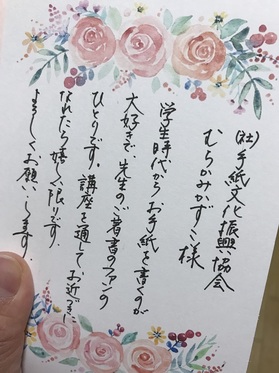 (社)手紙文化振興協会
むらかみかずこ様
学生時代からお手紙を書くのが
大好きで、先生のご著書のファンの
ひとりです。講座を通してお近ずに
なれたら嬉しく限りです
よろしくお願いします。